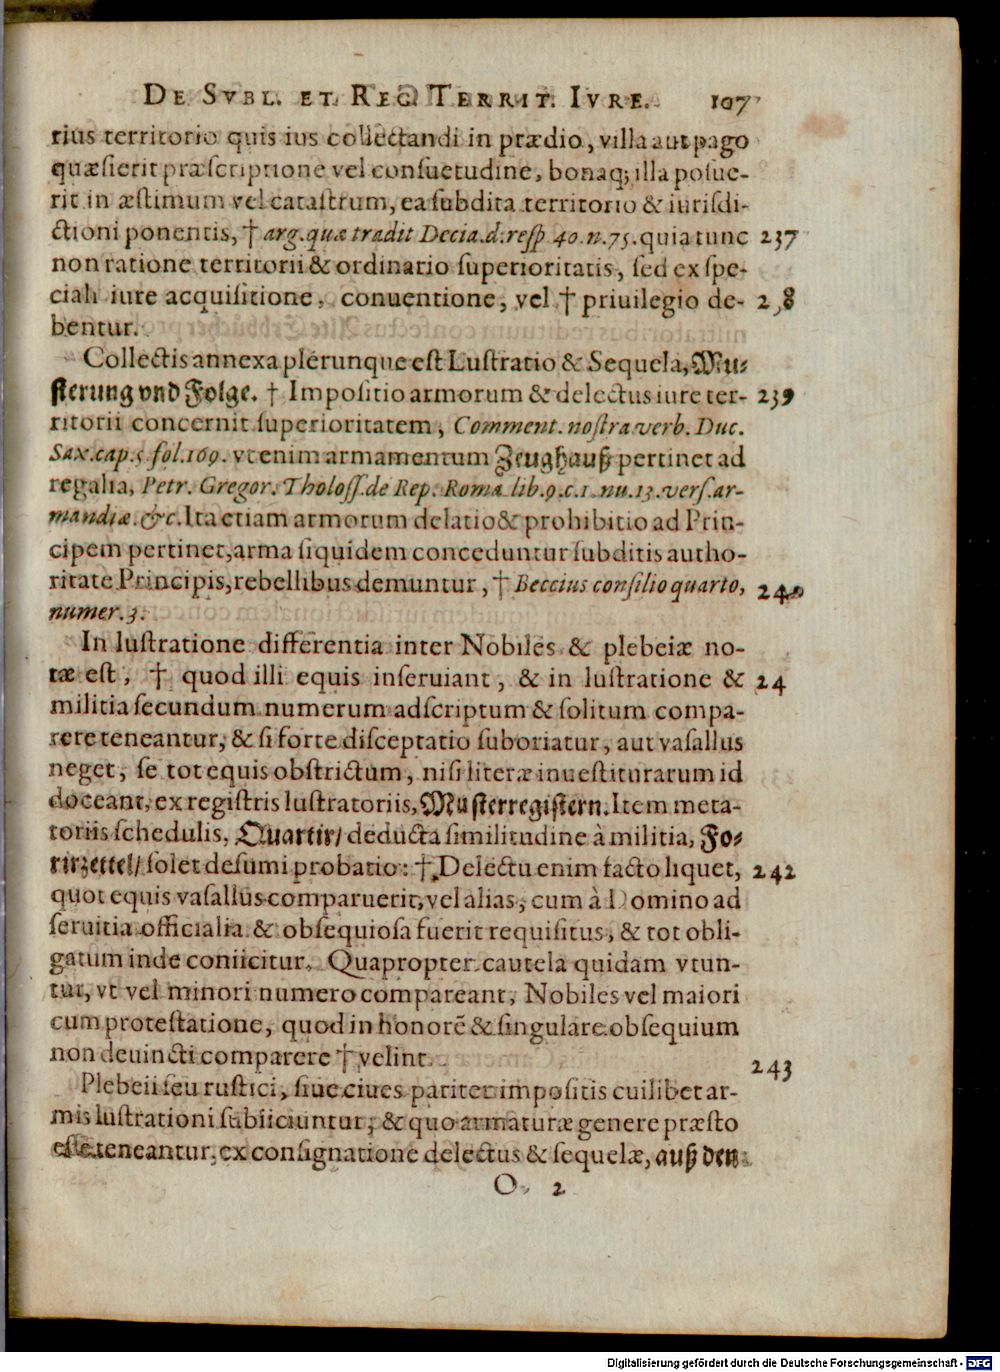 DE SVBL. ET REG. TERRIT. IVRE. 107
rius territorio quis ius collectandi in prædio, villa aut pago
quæsierit præscriptione vel consuetudine, bonaq; illa posue-
rit in æstimum vel catastrum, ea subdita territorio & iurisdi-
ctioni ponentis, † arg. quæ tradit Decia. d. resp 40. n. 75. quia tunc 237
non ratione territorii & ordinario superioritatis, sed ex spe-
ciali iure acquisitione, conuentione, vel † priuilegio de- 238
bentur.
Collectis annexa plerunque est Lustratio & Sequela, Mu-
sterung vnd Folge. † Impositio armorum & delectus iure ter- 239
ritorii concernit superioritatem, Comment. nostra verb. Duc.
Sax. cap. 5 fol. 169. vt enim armamentum Zeughauß pertinet ad
regalia, Petr. Gregor. Tholoss. de Rep. Roma lib. 9. c. 1. nu. 13. vers. ar-
mandiæ. &c. Ita etiam armorum delatio & prohibitio ad Prin-
cipem pertinet, arma siquidem conceduntur subditis autho-
ritate Principis, rebellibus demuntur, † Beccius consilio quarto, 240
numer. 3.
In lustratione differentia inter Nobiles & plebeiæ no-
tæ est, † quod illi equis inseruiant, & in lustratione & 24
militia secundum numerum adscriptum & solitum compa-
rere teneantur, & si forte disceptatio suboriatur, aut vasallus
neget, se tot equis obstrictum, nisi literæ inuestiturarum id
doceant, ex registris lustratoriis, Musterregistern. Item meta-
toriis schedulis, Quartir/ deducta similitudine à militia, Fo-
rirzettel/ solet desumi probatio: † Delectu enim facto liquet, 242
quot equis vasallus comparuerit, vel alias, cum à Domino ad
seruitia officialia & obsequiosa fuerit requisitus, & tot obli-
gatum inde coniicitur. Quapropter cautela quidam vtun-
tur, vt vel minori numero compareant, Nobiles vel maiori
cum protestatione, quod in honorē & singulare obsequium
non deuincti comparere † velint. 243
Plebeii seu rustici, siue ciues pariter impositis cuilibet ar-
mis lustrationi subiiciuntur, & quo armaturæ genere præsto
esse teneantur, ex consignatione delectus & sequelæ, auß den
O 2
Digitalisierung gefördert durch die Deutsche Forschungsgemeinschaft - DFG